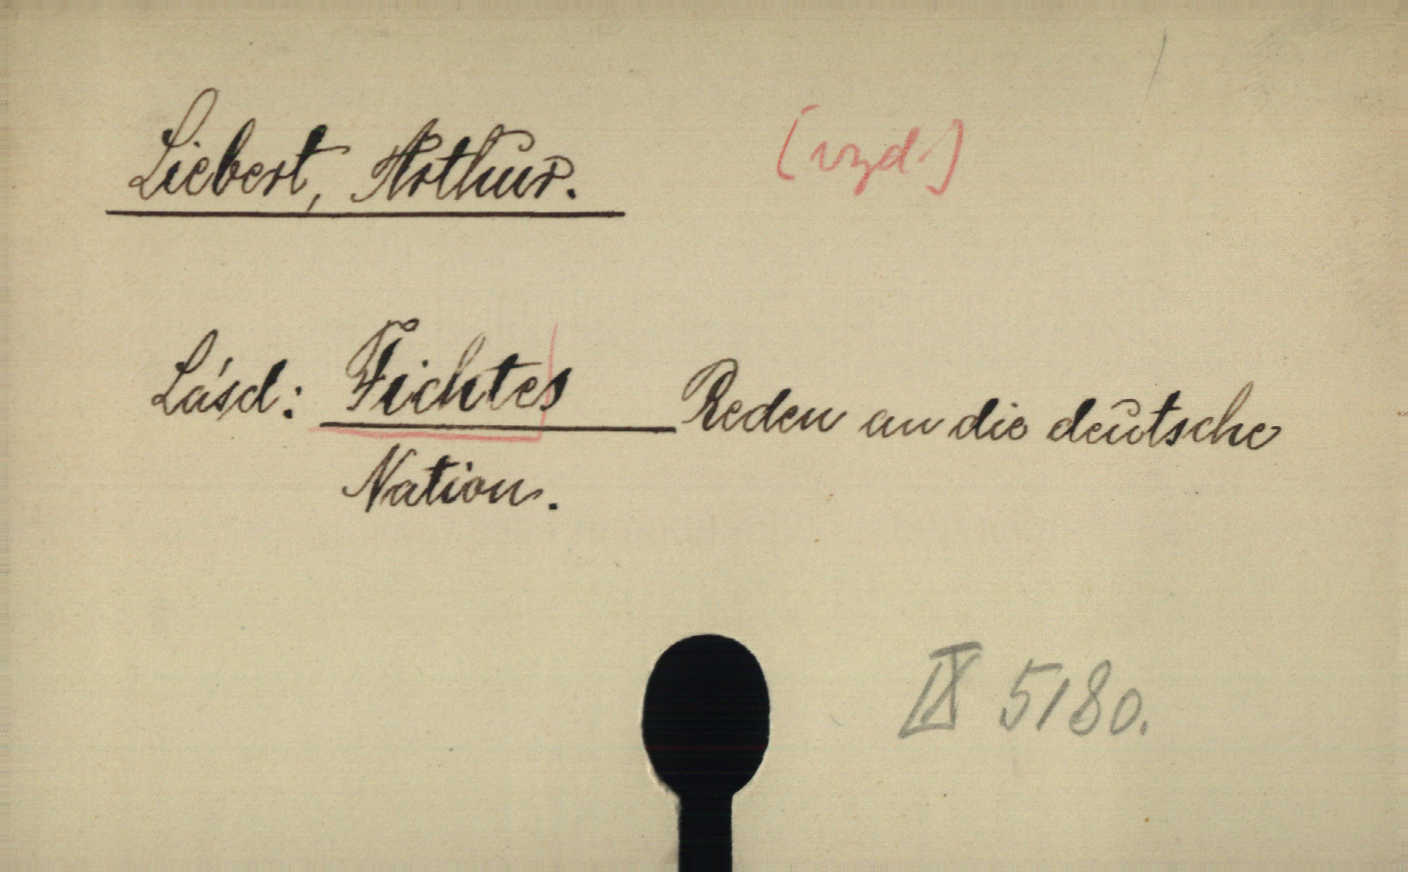 Liebert, Arthur.
Lásd: Fichtes Reden an die deutsche
Nation.
IX 5180.